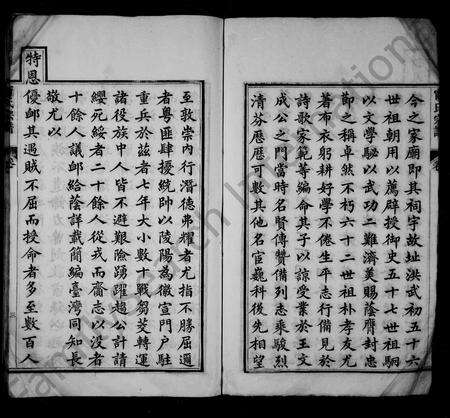 今之家廟即其祠宇故址洪武初五十六
世祖朝用以薦辟授御史五十七世祖駉
以文學馳以武功二難濟美賜蔭膺封忠
節之稱卓然不朽六十二世祖朴孝友尤
著布衣躬耕好學不倦生平志行備見於
詩歌家範等編命其子以諒受業於王文
成公之門當時名賢傳贊備列志乘駿烈
清芬歷歷可數其他名宦巍科後先相望
至敦崇內行潛德弗耀者尤指不勝屈迺
者粵匪肆擾統帥以陵陽為徽宣門戶駐
重兵於茲者七年大小數十戰芻茭轉運
諸役族中人皆不避艱險踴躍趨公計請
纓死綏者二十餘人從戎而齎志以沒者
十餘人議卹給蔭詳載簡編臺灣同知長
敬尤以
特恩
優卹其遇賊不屈而授命者多至數百人
氏宗譜
卷